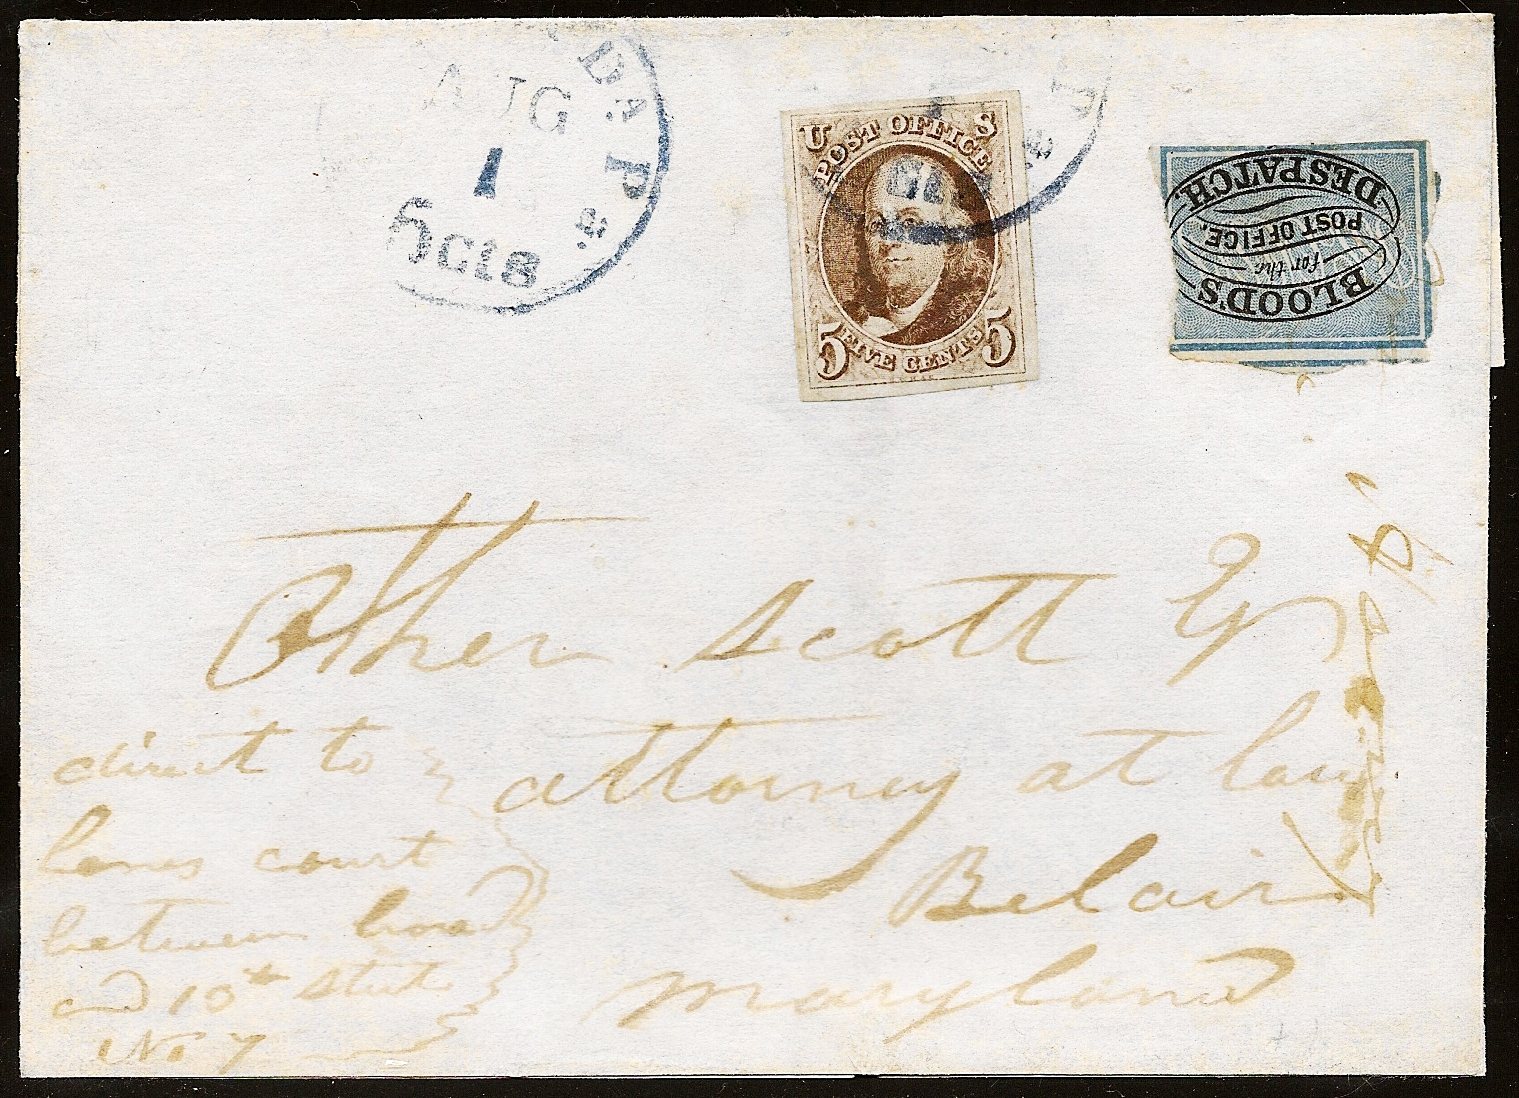 DA PA
AUG
1
5 cts
U S
POST OFFICE
FIVE CENTS
5 5
BLOOD'S
for the
POST OFFICE,
DESPATCH.
Other Scott
attorney at law
Belair
Maryland
direct to
court
between broad
and 10th street
No 7